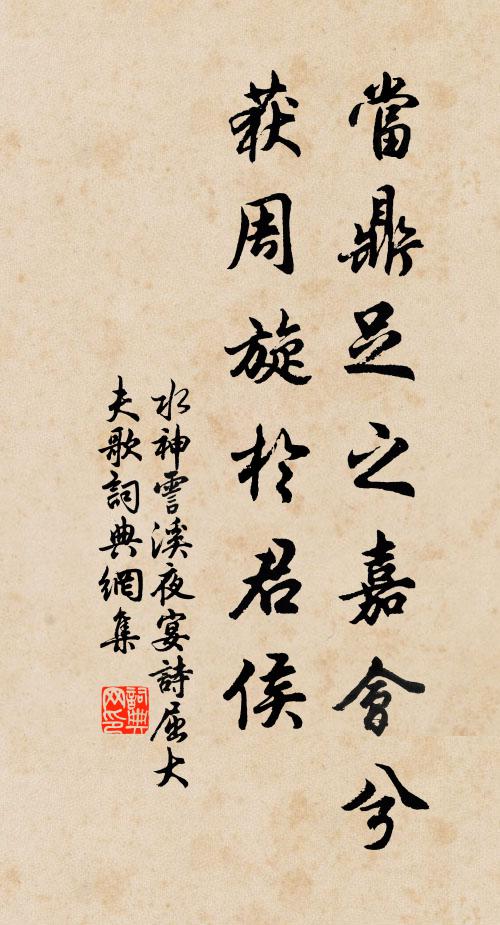 當鼎足之嘉會兮
獲周旋於君侯
水神霅溪夜宴詩屈大
夫歌詞典網集
詞典
网印